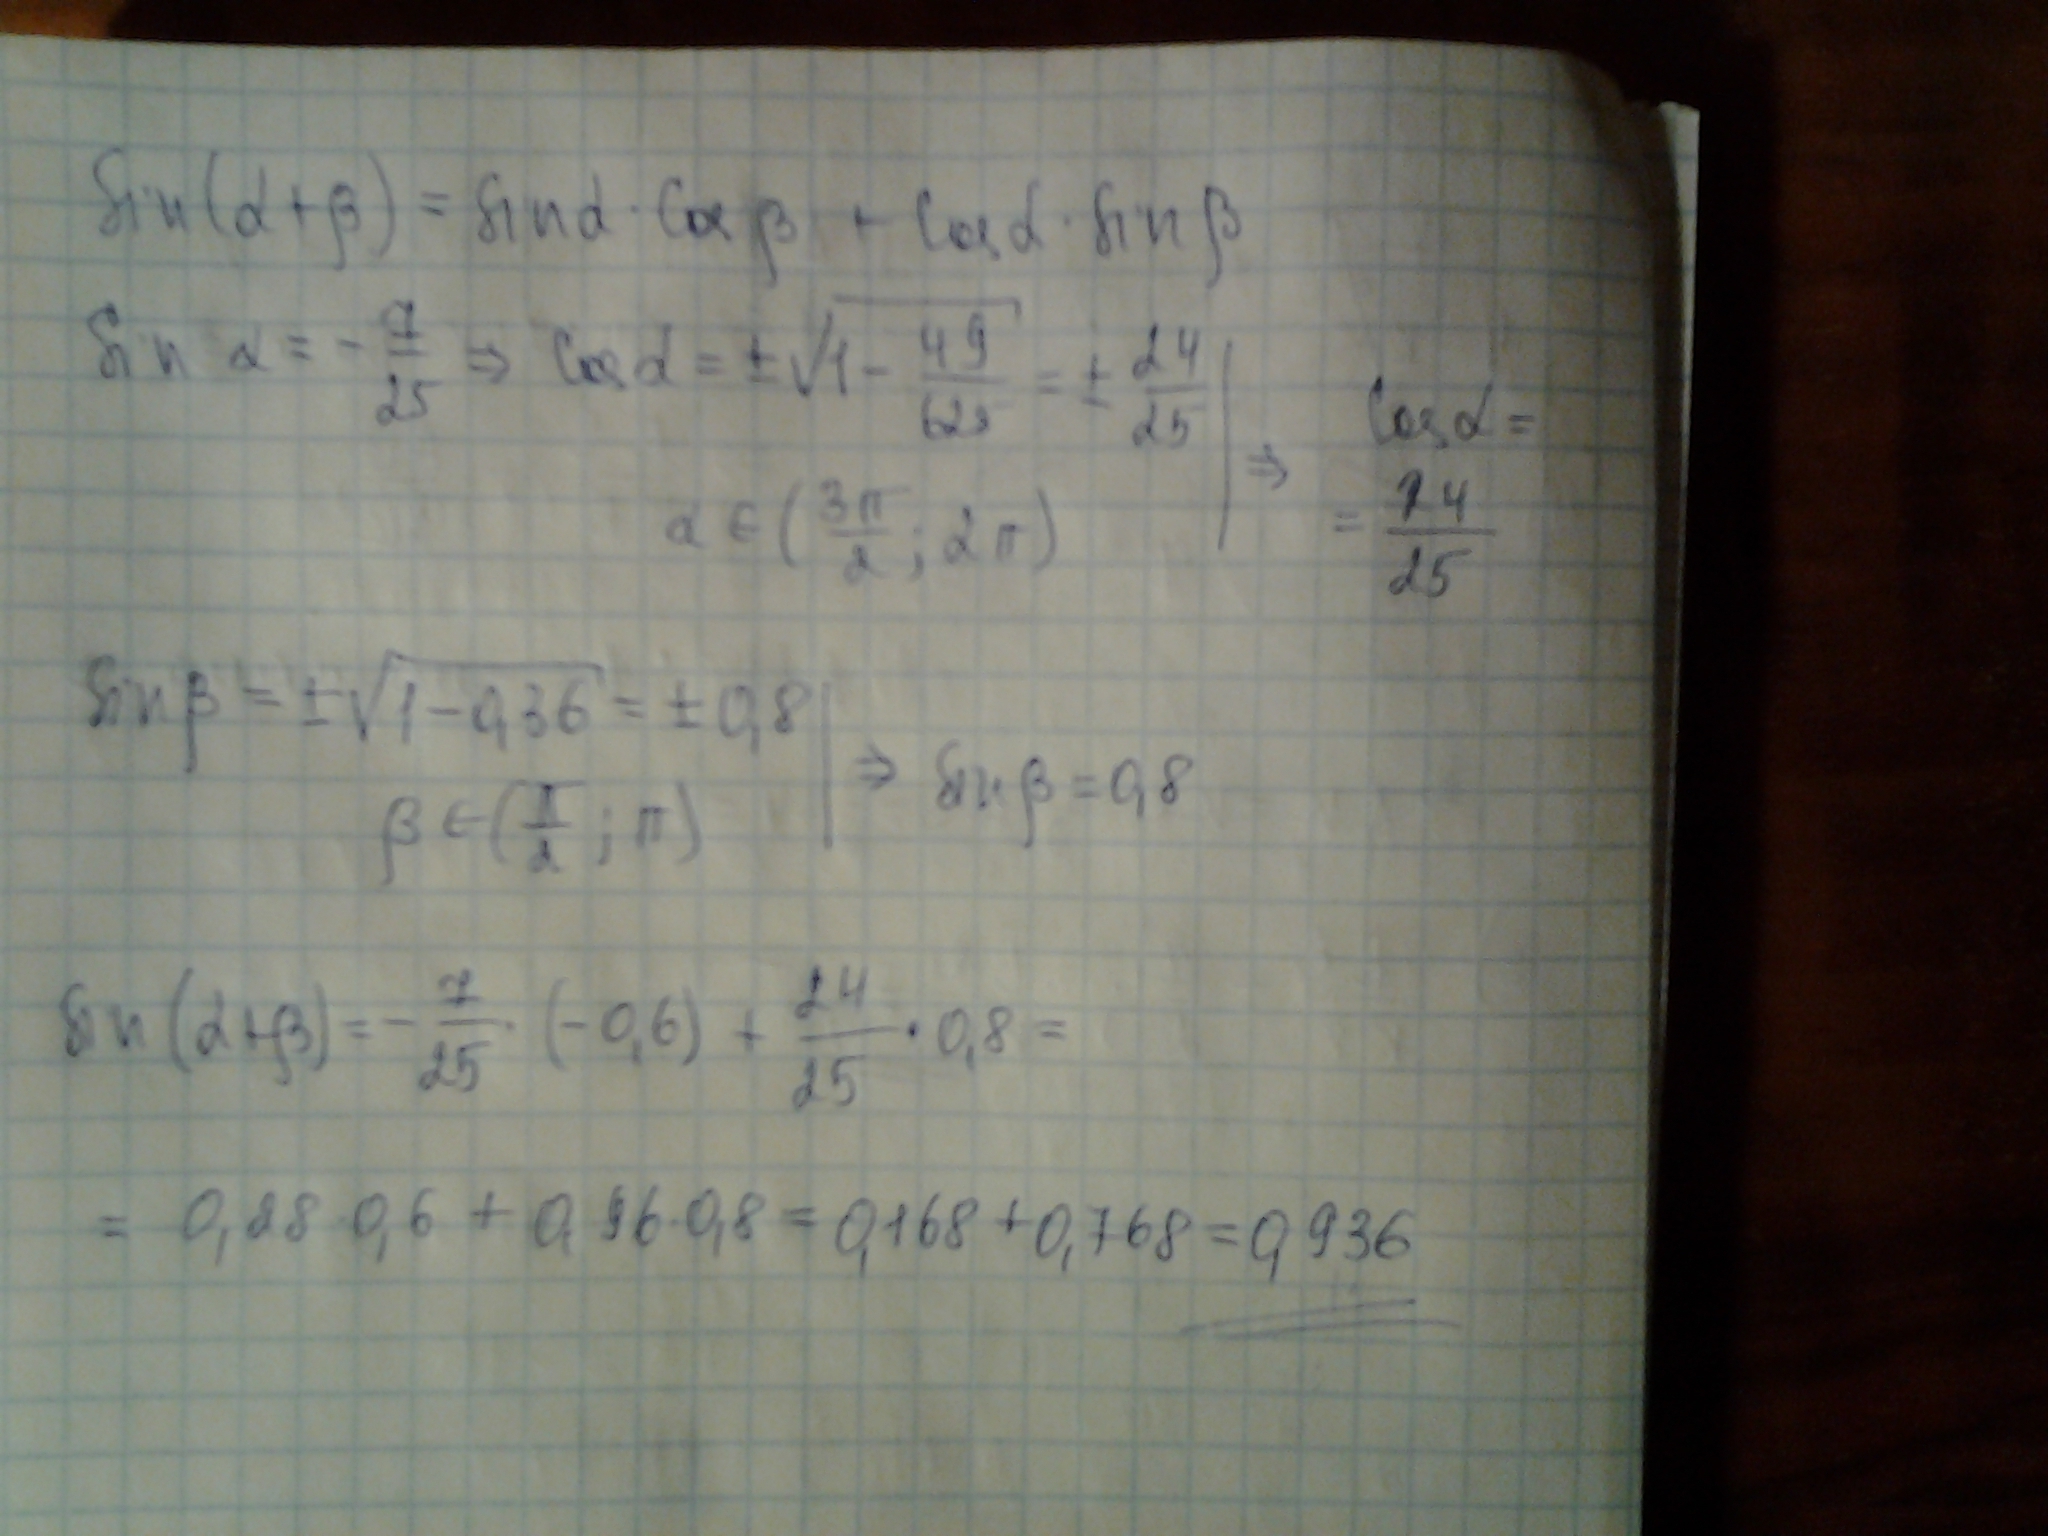 sin(α+β) = sinα · cosβ + cosα · sinβ
sin α = -7/25 ⇒ cosα = ±√(1 - 49/625) = ±24/25 | ⇒ cosα =
α ∈ (3π/2; 2π) = 24/25
sinβ = ±√(1-0,36) = ±0,8 | ⇒ sinβ = 0,8
β ∈ (π/2; π)
sin(α+β) = -7/25 · (-0,6) + 24/25 · 0,8 =
= 0,28 · 0,6 + 0,96 · 0,8 = 0,168 + 0,768 = 0,936